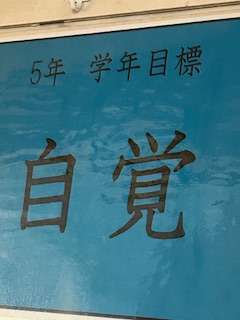 5年 学年目標
自覚